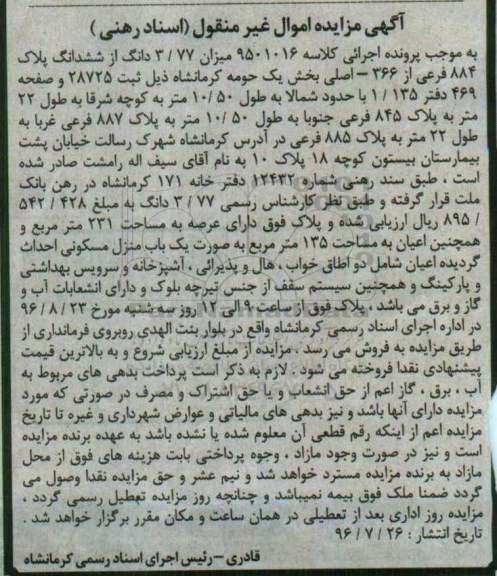 آگهی مزایده اموال غیر منقول (اسناد رهنی)
به موجب پرونده اجرائی کلاسه ۹۵۰۱۰۱۶ میزان ۳/۷۷ دانگ از ششدانگ پلاک
۸۸۴ فرعی از ۳۶۶ – اصلی بخش یک حومه کرمانشاه ذیل ثبت ۲۸۷۲۵ و صفحه
۴۶۹ دفتر ۱/۱۳۵ با حدود شمالا به طول ۱۰/۵۰ متر به کوچه شرقا به طول ۲۲
متر به پلاک ۸۴۵ فرعی جنوبا به طول ۱۰/۵۰ متر به پلاک ۸۸۷ فرعی غربا به
طول ۲۲ متر به پلاک ۸۸۵ فرعی در آدرس کرمانشاه شهرک رسالت خیابان پشت
بیمارستان بیستون کوچه ۱۸ پلاک ۱۰ به نام آقای سیف اله رامشت صادر شده
است ، طبق سند رهنی شماره ۱۲۴۳۲ دفتر خانه ۱۷۱ کرمانشاه در رهن بانک
ملت قرار گرفته و طبق نظر کارشناس رسمی ۳/۷۷ دانگ به مبلغ ۵۴۲/۴۲۸
/۸۹۵ ریال ارزیابی شده و پلاک فوق دارای عرصه به مساحت ۲۳۱ متر مربع و
همچنین اعیان به مساحت ۱۳۵ متر مربع به صورت یک باب منزل مسکونی احداث
گردیده اعیان شامل دو اطاق خواب ، هال و پذیرائی ، آشپزخانه و سرویس بهداشتی
و پارکینگ و همچنین سیستم سقف از جنس تیرچه بلوک و دارای انشعابات آب و
گاز و برق می باشد ، پلاک فوق از ساعت ۹ الی ۱۲ روز سه شنبه مورخ ۹۶/۸/۲۳
در اداره اجرای اسناد رسمی کرمانشاه واقع در بلوار بنت الهدی روبروی فرمانداری از
طریق مزایده به فروش می رسد . مزایده از مبلغ ارزیابی شروع و به بالاترین قیمت
پیشنهادی نقدا فروخته می شود . لازم به ذکر است پرداخت بدهی های مربوط به
آب ، برق ، گاز اعم از حق انشعاب و یا حق اشتراک و مصرف در صورتی که مورد
مزایده دارای آنها باشد و نیز بدهی های مالیاتی و عوارض شهرداری و غیره تا تاریخ
مزایده اعم از اینکه رقم قطعی آن معلوم شده یا نشده باشد به عهده برنده مزایده
است و نیز در صورت وجود مازاد ، وجوه پرداختی بابت هزینه های فوق از محل
مازاد به برنده مزایده مسترد خواهد شد و نیم عشر و حق مزایده نقدا وصول می
گردد ضمنا ملک فوق بیمه نمیباشد و چنانچه روز مزایده تعطیل رسمی گردد ،
مزایده روز اداری بعد از تعطیلی در همان ساعت و مکان مقرر برگزار خواهد شد .
تاریخ انتشار : ۹۶/۷/۲۶
قادری – رئیس اجرای اسناد رسمی کرمانشاه